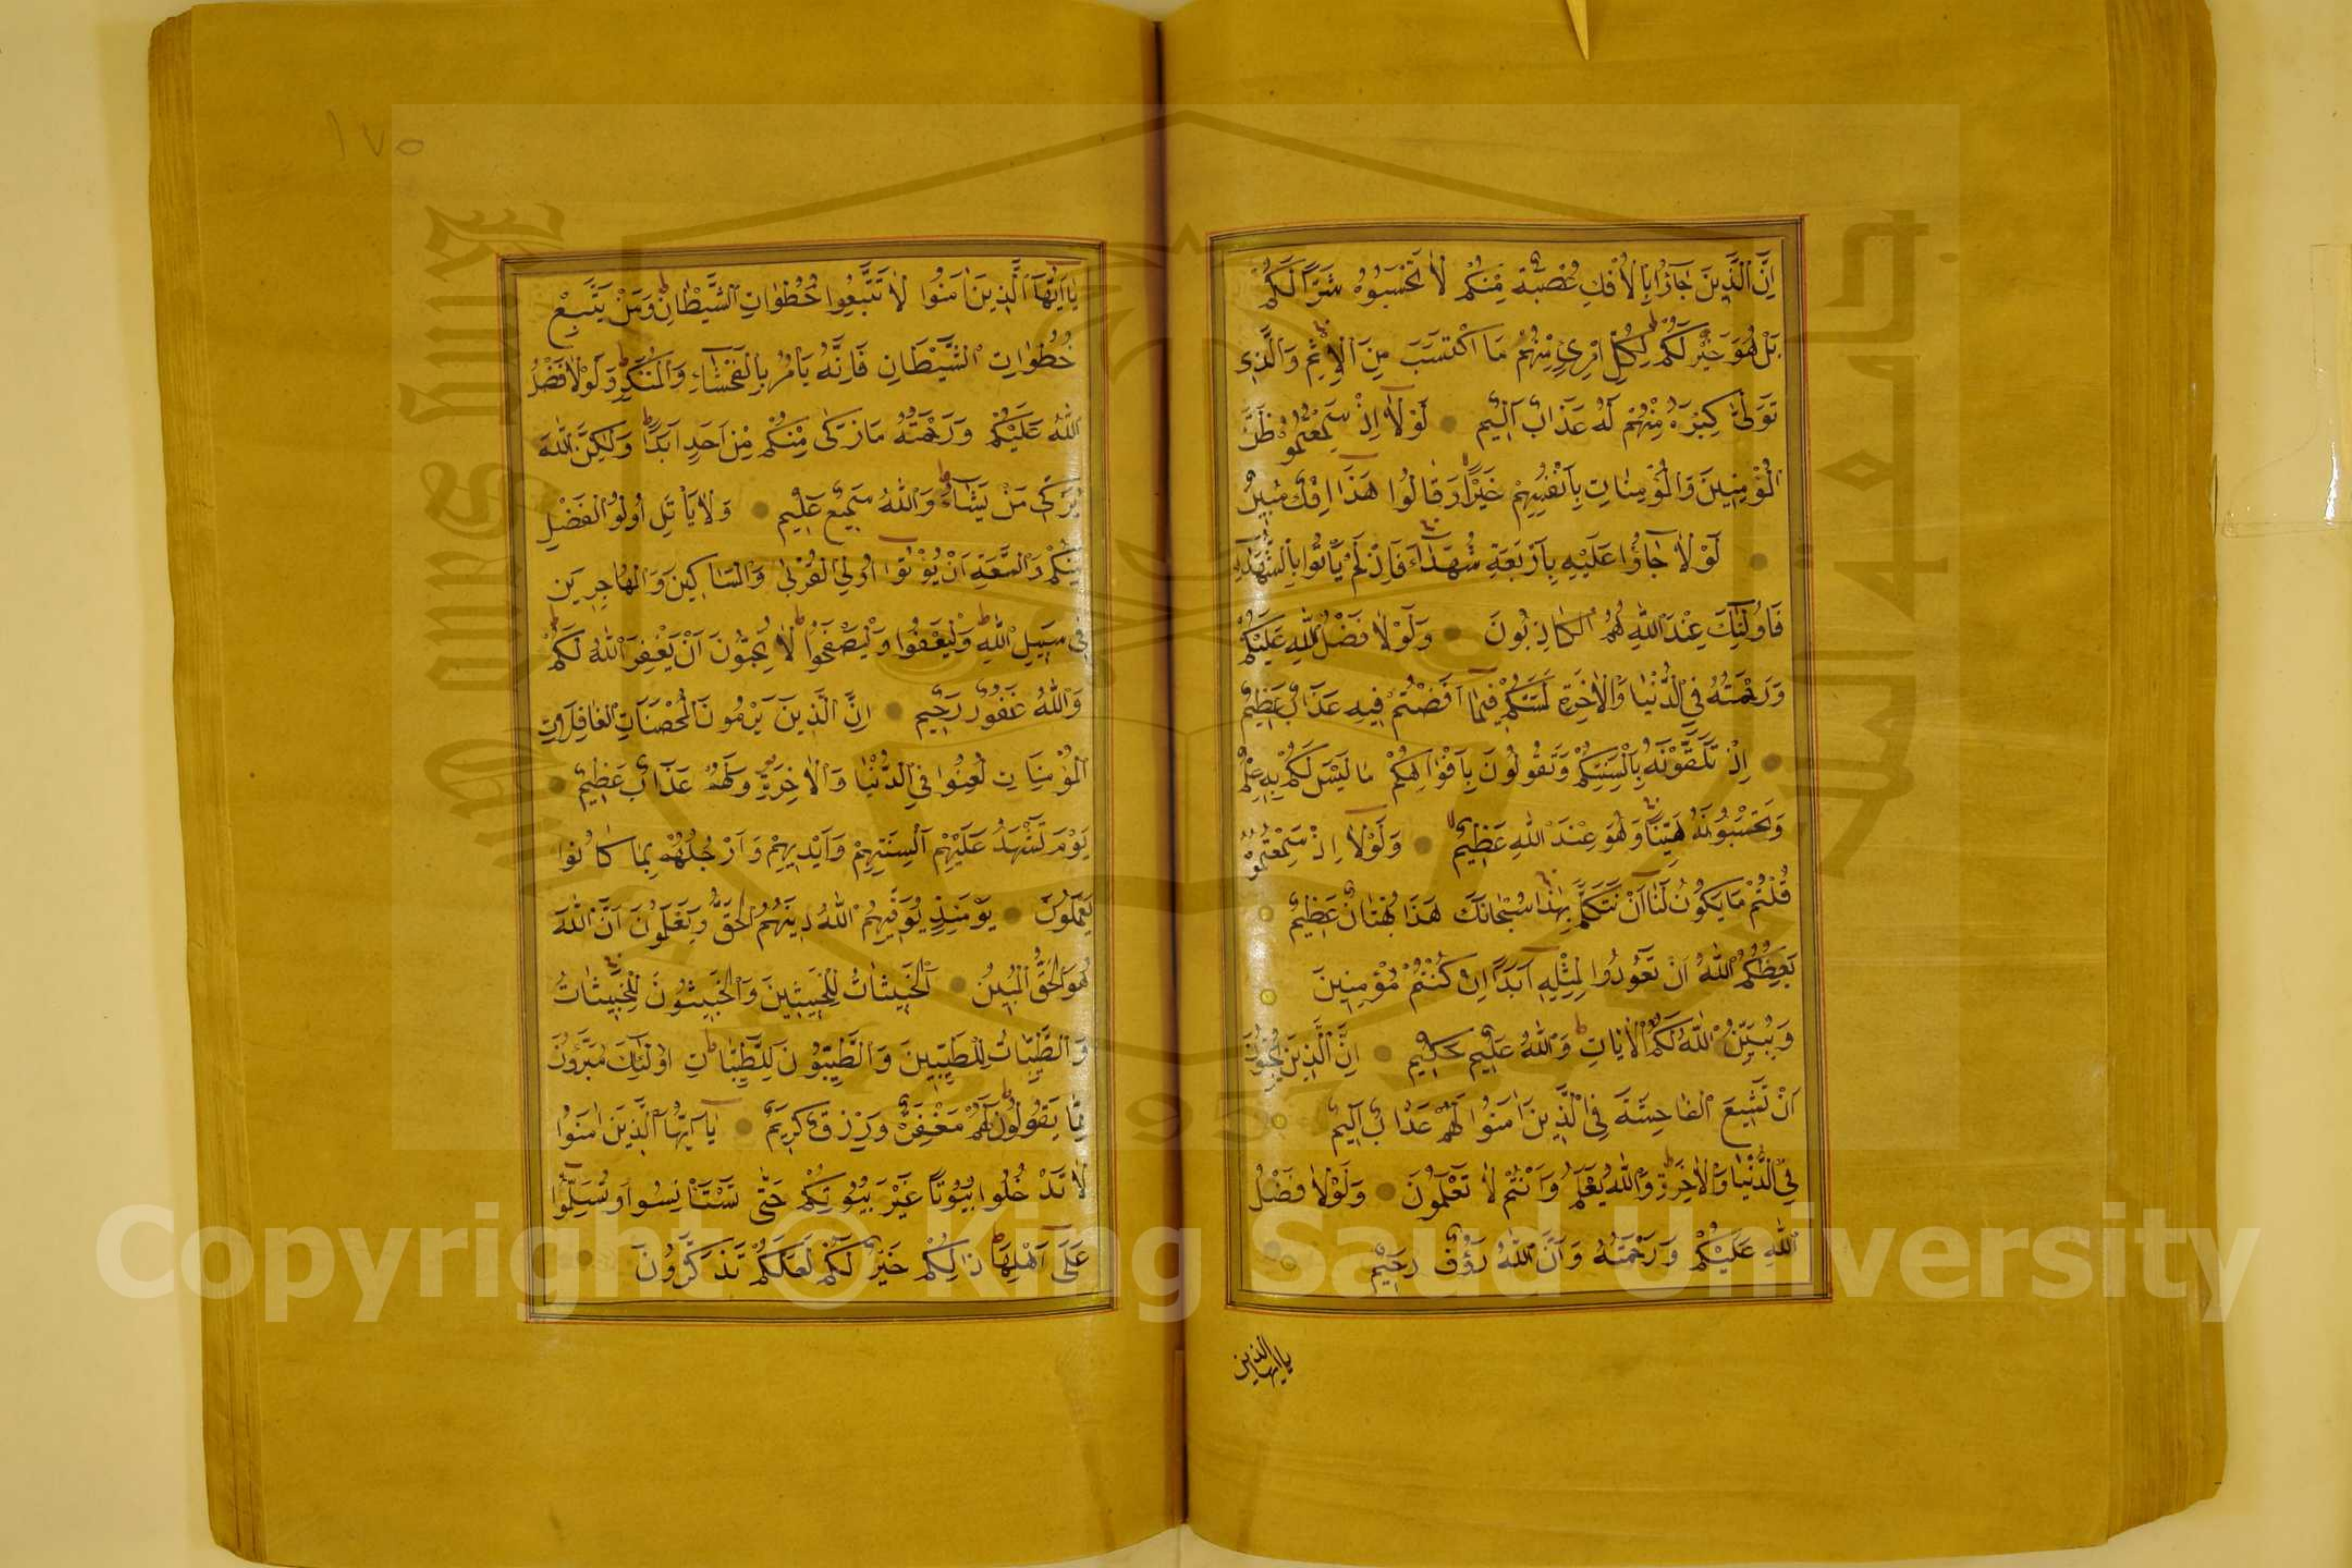 اِنَّ الَّذِينَ جَاؤُا بِالْاِفْكِ عُصْبَةٌ مِنْكُمْ لَا تَحْسَبُوهُ شَرًّا لَكُمْ
بَلْ هُوَ خَيْرٌ لَكُمْ لِكُلِّ امْرِئٍ مِنْهُمْ مَا اكْتَسَبَ مِنَ الْاِثْمِ وَالَّذِى
تَوَلّٰى كِبْرَهُ مِنْهُمْ لَهُ عَذَابٌ اَلِيمٌ لَوْلَا اِذْ سَمِعْتُمُوهُ ظَنَّ
الْمُؤْمِنِينَ وَالْمُؤْمِنَاتِ بِاَنْفُسِهِمْ خَيْرًا وَقَالُوا هَذَا اِفْكٌ مُبِينٌ
لَوْلَا جَاؤُا عَلَيْهِ بِاَرْبَعَةِ شُهَدَاءَ فَاِذْ لَمْ يَأْتُوا بِالشُّهَدَاءِ
فَاُولٰئِكَ عِنْدَ اللّٰهِ هُمُ الْكَاذِبُونَ وَلَوْلَا فَضْلُ اللّٰهِ عَلَيْكُمْ
وَرَحْمَتُهُ فِي الدُّنْيَا وَالْاٰخِرَةِ لَمَسَّكُمْ فِيمَا اَفَضْتُمْ فِيهِ عَذَابٌ عَظِيمٌ
اِذْ تَلَقَّوْنَهُ بِاَلْسِنَتِكُمْ وَتَقُولُونَ بِاَفْوَاهِكُمْ مَا لَيْسَ لَكُمْ بِهِ عِلْمٌ
وَتَحْسَبُونَهُ هَيِّنًا وَهُوَ عِنْدَ اللّٰهِ عَظِيمٌ وَلَوْلَا اِذْ سَمِعْتُمُوهُ
قُلْتُمْ مَا يَكُونُ لَنَا اَنْ نَتَكَلَّمَ بِهٰذَا سُبْحَانَكَ هَذَا بُهْتَانٌ عَظِيمٌ
يَعِظُكُمُ اللّٰهُ اَنْ تَعُودُوا لِمِثْلِهِ اَبَدًا اِنْ كُنْتُمْ مُؤْمِنِينَ
وَيُبَيِّنُ اللّٰهُ لَكُمُ الْاٰيَاتِ وَاللّٰهُ عَلِيمٌ حَكِيمٌ اِنَّ الَّذِينَ يُحِبُّونَ
اَنْ تَشِيعَ الْفَاحِشَةَ فِي الَّذِينَ اٰمَنُوا لَهُمْ عَذَابٌ اَلِيمٌ
فِي الدُّنْيَا وَالْاٰخِرَةِ وَاللّٰهُ يَعْلَمُ وَاَنْتُمْ لَا تَعْلَمُونَ وَلَوْلَا فَضْلُ
اللّٰهِ عَلَيْكُمْ وَرَحْمَتُهُ وَاَنَّ اللّٰهَ رَؤُفٌ رَحِيمٌ
ياايها الذين
١٧٥
يَااَيُّهَا الَّذِينَ اٰمَنُوا لَا تَتَّبِعُوا خُطُوَاتِ الشَّيْطَانِ وَمَنْ يَتَّبِعْ
خُطُوَاتِ الشَّيْطَانِ فَاِنَّهُ يَأْمُرُ بِالْفَحْشَاءِ وَالْمُنْكَرِ وَلَوْلَا فَضْلُ
اللّٰهِ عَلَيْكُمْ وَرَحْمَتُهُ مَا زَكٰى مِنْكُمْ مِنْ اَحَدٍ اَبَدًا وَلٰكِنَّ اللّٰهَ
يُزَكِّى مَنْ يَشَاءُ وَاللّٰهُ سَمِيعٌ عَلِيمٌ وَلَا يَأْتَلِ اُولُوا الْفَضْلِ
مِنْكُمْ وَالسَّعَةِ اَنْ يُؤْتُوا اُولِي الْقُرْبٰى وَالْمَسَاكِينَ وَالْمُهَاجِرِينَ
فِي سَبِيلِ اللّٰهِ وَلْيَعْفُوا وَلْيَصْفَحُوا لَا تُحِبُّونَ اَنْ يَغْفِرَ اللّٰهُ لَكُمْ
وَاللّٰهُ غَفُورٌ رَحِيمٌ اِنَّ الَّذِينَ يَرْمُونَ الْمُحْصَنَاتِ الْغَافِلَاتِ
الْمُؤْمِنَاتِ لُعِنُوا فِي الدُّنْيَا وَالْاٰخِرَةِ وَلَهُمْ عَذَابٌ عَظِيمٌ
يَوْمَ تَشْهَدُ عَلَيْهِمْ اَلْسِنَتُهُمْ وَاَيْدِيهِمْ وَاَرْجُلُهُمْ بِمَا كَانُوا
يَعْمَلُونَ يَوْمَئِذٍ يُوَفِّيهِمُ اللّٰهُ دِينَهُمُ الْحَقَّ وَيَعْلَمُونَ اَنَّ اللّٰهَ
هُوَ الْحَقُّ الْمُبِينُ اَلْخَبِيثَاتُ لِلْخَبِيثِينَ وَالْخَبِيثُونَ لِلْخَبِيثَاتِ
وَالطَّيِّبَاتُ لِلطَّيِّبِينَ وَالطَّيِّبُونَ لِلطَّيِّبَاتِ اُولٰئِكَ مُبَرَّؤُنَ
مِمَّا يَقُولُونَ لَهُمْ مَغْفِرَةٌ وَرِزْقٌ كَرِيمٌ يَااَيُّهَا الَّذِينَ اٰمَنُوا
لَا تَدْخُلُوا بُيُوتًا غَيْرَ بُيُوتِكُمْ حَتّٰى تَسْتَأْنِسُوا وَتُسَلِّمُوا
عَلٰى اَهْلِهَا ذٰلِكُمْ خَيْرٌ لَكُمْ لَعَلَّكُمْ تَذَكَّرُونَ
Copyright © King Saud University
King Saud University
1957